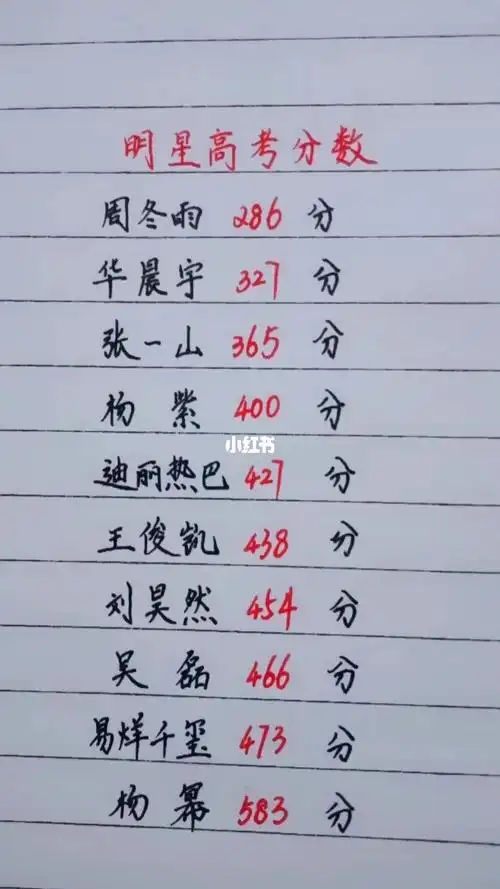 明星高考分数
周冬雨 286 分
华晨宇 327 分
张一山 365 分
杨紫 400 分
小红书
迪丽热巴 427 分
王俊凯 438 分
刘昊然 454 分
吴磊 466 分
易烊千玺 473 分
杨幂 583 分